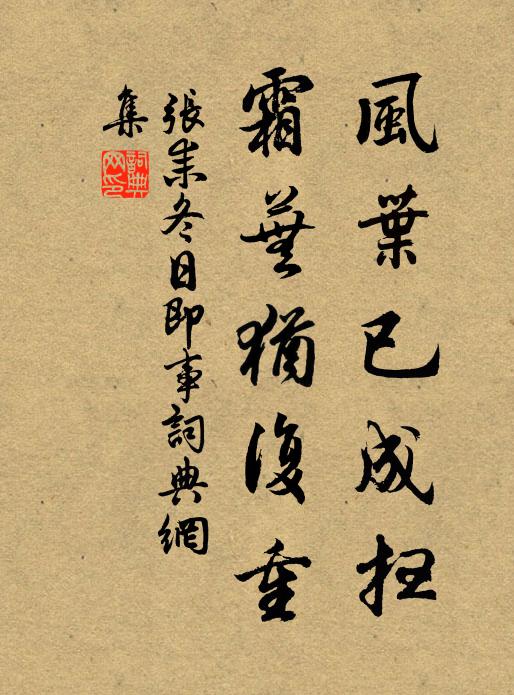 風葉已成
霜蕪猶復重
張耒冬日即事詞典網
集
詞典
网印